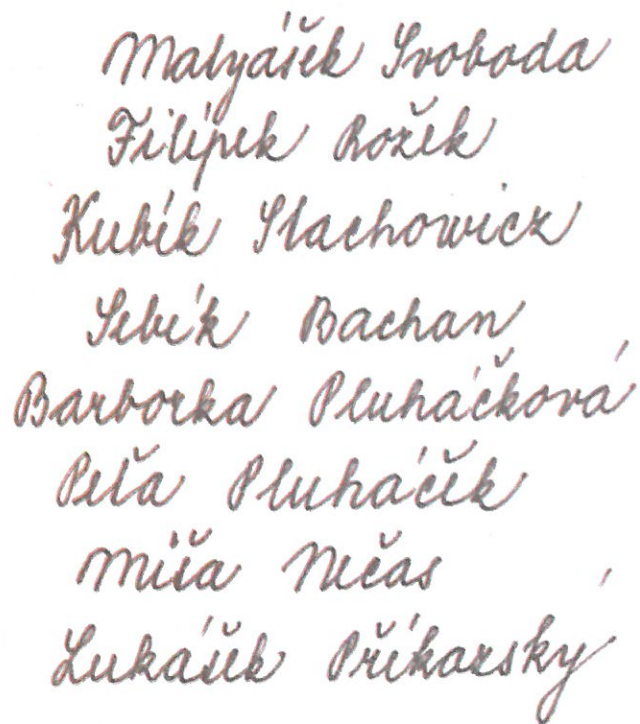 Matyášek Svoboda
Filípek Rožek
Kubík Stachowicz
Sebík Bachan
Barborka Pluháčková
Peťa Pluháček
Míša Nečas
Lukášek Příkazský